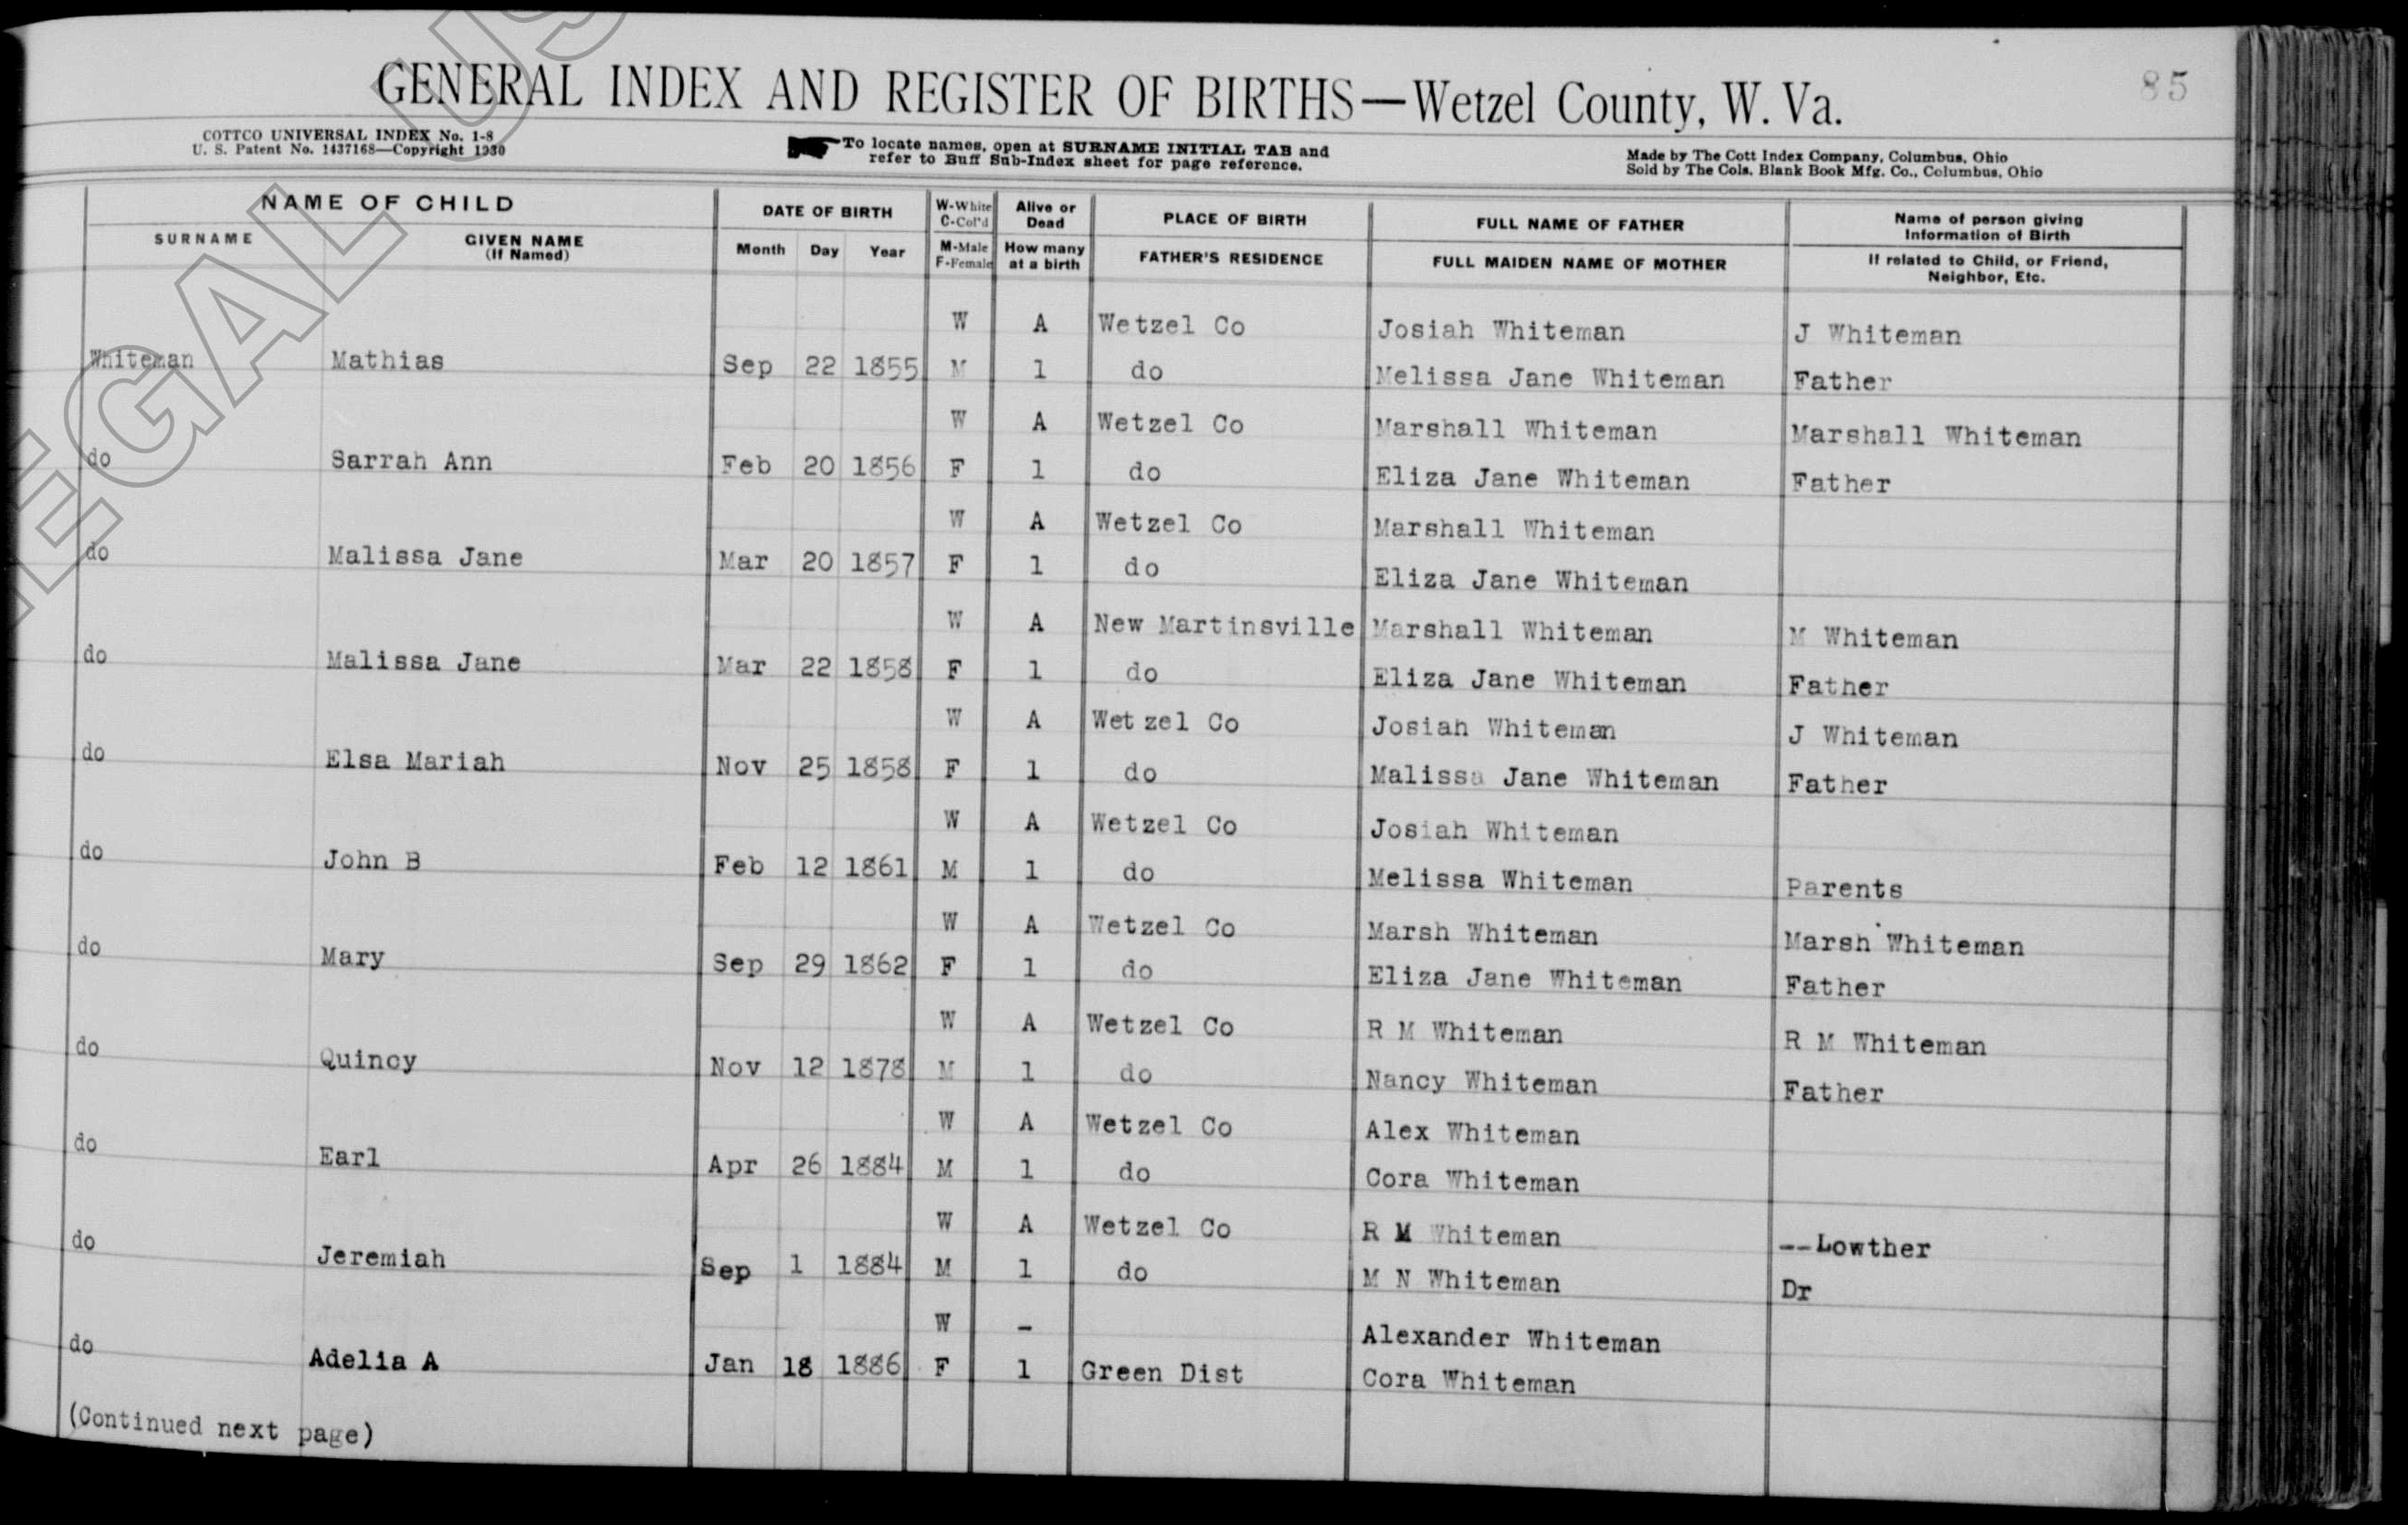 GENERAL INDEX AND REGISTER OF BIRTHS—Wetzel County, W. Va.
85
COTTCO UNIVERSAL INDEX No. 1-8
U. S. Patent No. 1437168—Copyright 1930
To locate names, open at SURNAME INITIAL TAB and
refer to Buff Sub-Index sheet for page reference.
Made by The Cott Index Company, Columbus, Ohio
Sold by The Cols. Blank Book Mfg. Co., Columbus, Ohio
NAME OF CHILD DATE OF BIRTH W-White C-Col'd Alive or Dead PLACE OF BIRTH FULL NAME OF FATHER Name of person giving Information of Birth
SURNAME GIVEN NAME (If Named) Month Day Year M-Male F-Female How many at a birth FATHER'S RESIDENCE FULL MAIDEN NAME OF MOTHER If related to Child, or Friend, Neighbor, Etc.
W A Wetzel Co Josiah Whiteman J Whiteman
Whiteman Mathias Sep 22 1855 M 1 do Melissa Jane Whiteman Father
W A Wetzel Co Marshall Whiteman Marshall Whiteman
do Sarrah Ann Feb 20 1856 F 1 do Eliza Jane Whiteman Father
W A Wetzel Co Marshall Whiteman
do Malissa Jane Mar 20 1857 F 1 do Eliza Jane Whiteman
W A New Martinsville Marshall Whiteman M Whiteman
do Malissa Jane Mar 22 1858 F 1 do Eliza Jane Whiteman Father
W A Wetzel Co Josiah Whiteman J Whiteman
do Elsa Mariah Nov 25 1858 F 1 do Malissa Jane Whiteman Father
W A Wetzel Co Josiah Whiteman
do John B Feb 12 1861 M 1 do Melissa Whiteman Parents
W A Wetzel Co Marsh Whiteman Marsh Whiteman
do Mary Sep 29 1862 F 1 do Eliza Jane Whiteman Father
W A Wetzel Co R M Whiteman R M Whiteman
do Quincy Nov 12 1878 M 1 do Nancy Whiteman Father
W A Wetzel Co Alex Whiteman
do Earl Apr 26 1884 M 1 do Cora Whiteman
W A Wetzel Co R M Whiteman --Lowther
do Jeremiah Sep 1 1884 M 1 do M N Whiteman Dr
W - Alexander Whiteman
do Adelia A Jan 18 1886 F 1 Green Dist Cora Whiteman
(Continued next page)